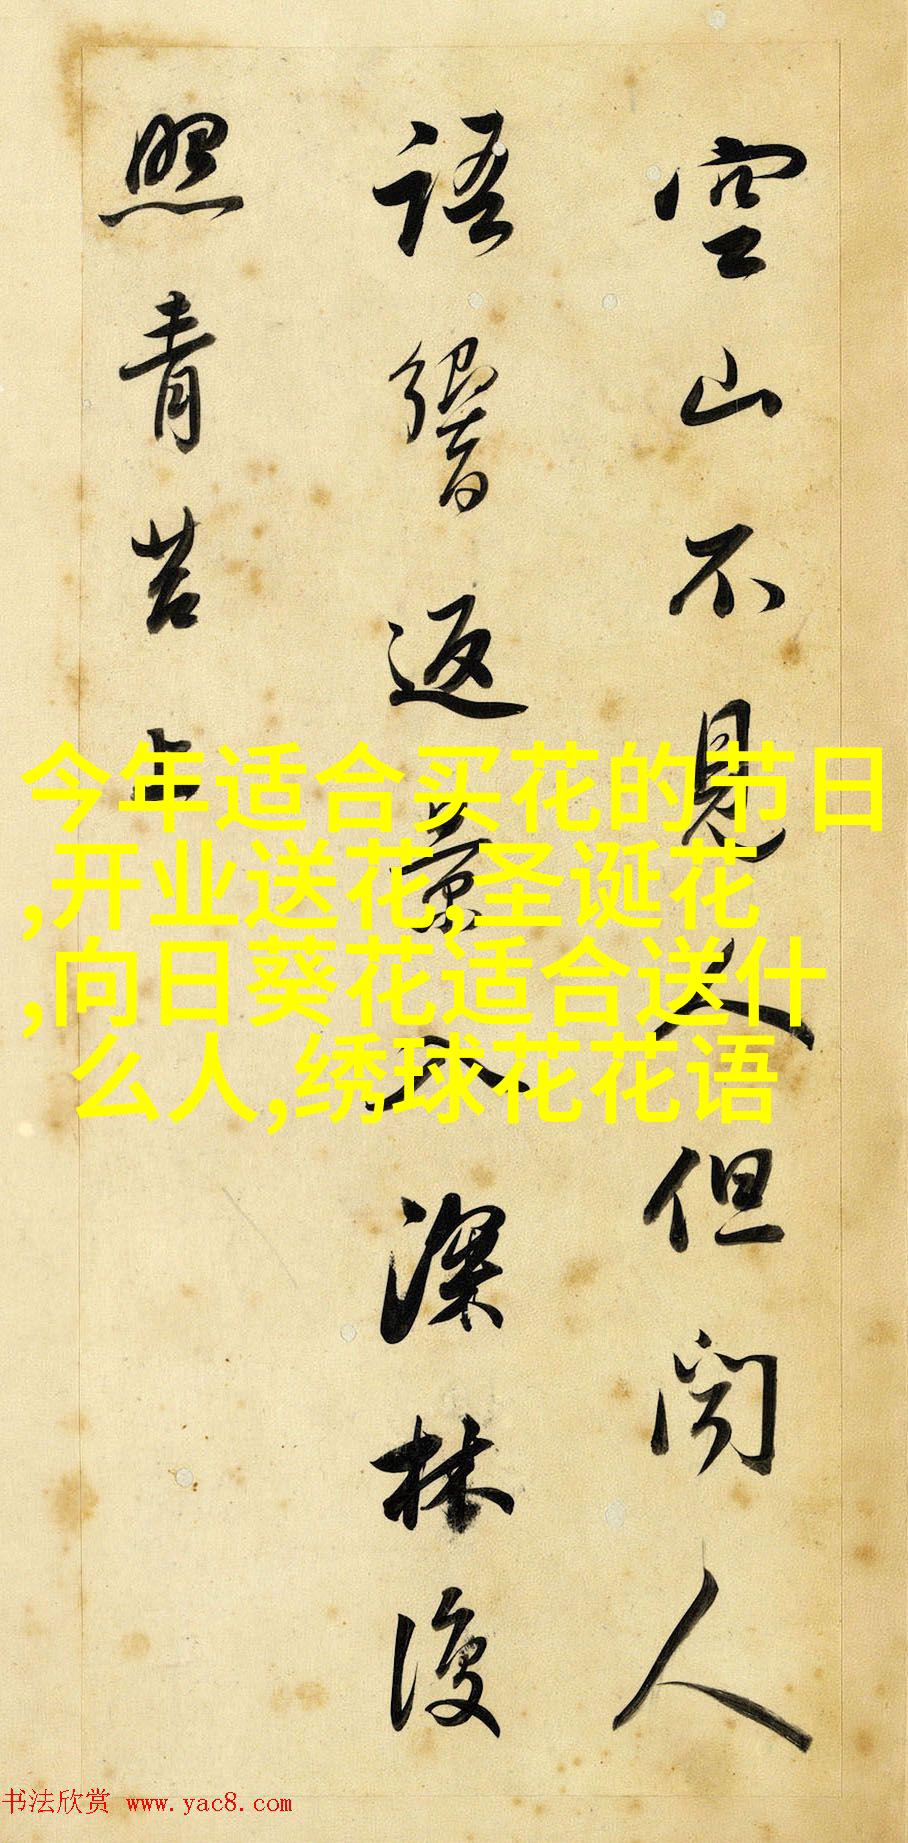 空山不見人但闻人
語響返景入深林復
照青苔上
今年适合买花的节日
,开业送花,圣诞花
,向日葵花适合送什
么人,绣球花花语
书法欣赏 www.yac8.com